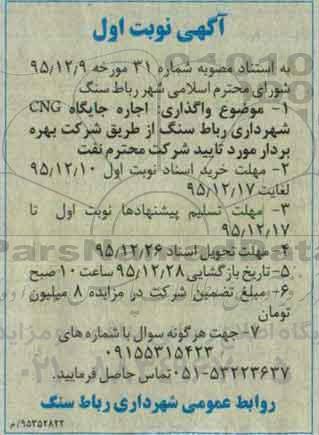 آگهی نوبت اول
به استناد مصوبه شماره ۳۱ مورخه ۹۵/۱۲/۹
شورای محترم اسلامی شهر رباط سنگ
۱- موضوع واگذاری: اجاره جایگاه CNG
شهرداری رباط سنگ از طریق شرکت بهره
بردار مورد تایید شرکت محترم نفت
۲- مهلت خرید اسناد نوبت اول ۹۵/۱۲/۱۰
لغایت ۹۵/۱۲/۱۷
۳- مهلت تسلیم پیشنهادها نوبت اول تا
۹۵/۱۲/۱۷
۴- مهلت تحویل اسناد ۹۵/۱۲/۲۶
۵- تاریخ بازگشایی ۹۵/۱۲/۲۸ ساعت ۱۰ صبح
۶- مبلغ تضمین شرکت در مزایده ۸ میلیون
تومان
۷- جهت هرگونه سوال با شماره های
۰۹۱۵۵۳۱۵۴۲۳
۰۵۱-۵۳۲۲۳۶۳۷ تماس حاصل فرمایید.
روابط عمومی شهرداری رباط سنگ
۹۵۳۵۲۸۲۲/م